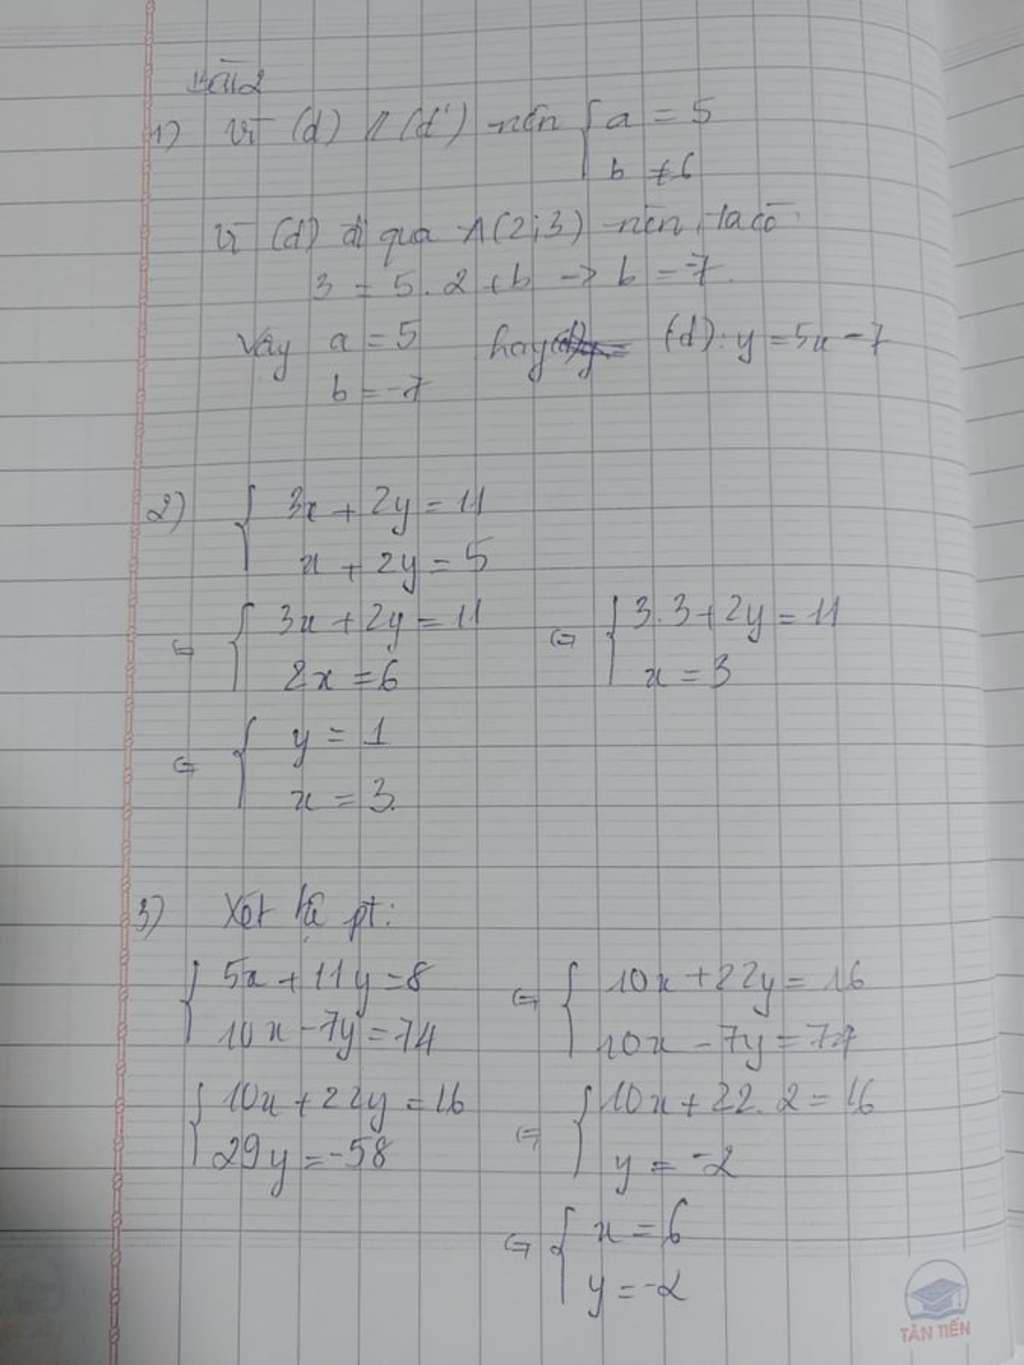 Bài 2
1) Vì (d) // (d') nên { a = 5
b ≠ 6
Vì (d) đi qua A(2;3) nên ta có:
3 = 5.2 + b -> b = -7.
Vậy a = 5 hay (d): y = 5x - 7
b = -7
2) { 3x + 2y = 11
x + 2y = 5
⇔ { 3x + 2y = 11 ⇔ { 3.3 + 2y = 11
2x = 6 x = 3
⇔ { y = 1
x = 3.
3) Xét hệ pt:
{ 5x + 11y = 8 ⇔ { 10x + 22y = 16
10x - 7y = 74 10x - 7y = 74
{ 10x + 22y = 16 ⇔ { 10x + 22.2 = 16
29y = -58 y = -2
⇔ { x = 6
y = -2
TÂN TIẾN